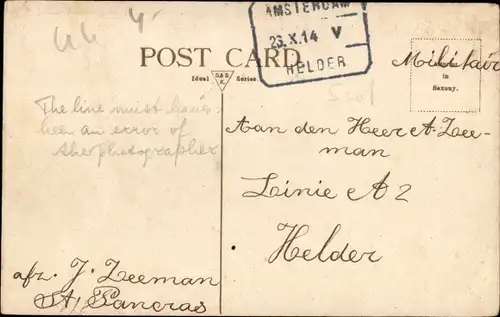 4
AMSTERDAM
23.X.14 V
HELDER
POST CARD
Ideal G&S K. Series.
Militair
in
Saxony.
The line must have
been an error of
the photographer
Aan den Heer A. Zee-
man
Linie A 2
Helder
afz. J. Zeeman
St. Pancras